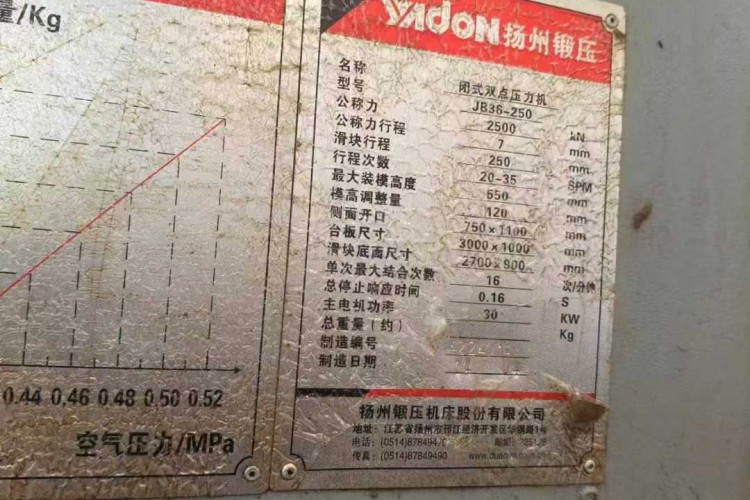 量/Kg
0.44 0.46 0.48 0.50 0.52
空气压力/MPa
YADON 扬州锻压
名称 闭式双点压力机
型号 JB36-250
公称力 2500 kN
公称力行程 7 mm
滑块行程 250 mm
行程次数 20-35 SPM
最大装模高度 550 mm
模高调整量 120 mm
侧面开口 750×1100 mm
台板尺寸 3000×1000 mm
滑块底面尺寸 2700×900 mm
单次最大结合次数 16 次/分钟
总停止响应时间 0.16 S
主电机功率 30 KW
总重量(约) Kg
制造编号
制造日期
扬州锻压机床股份有限公司
地址: 江苏省扬州市邗江经济开发区华钢路1号
电话: (0514)8784947 邮编:
传真: (0514)87849490